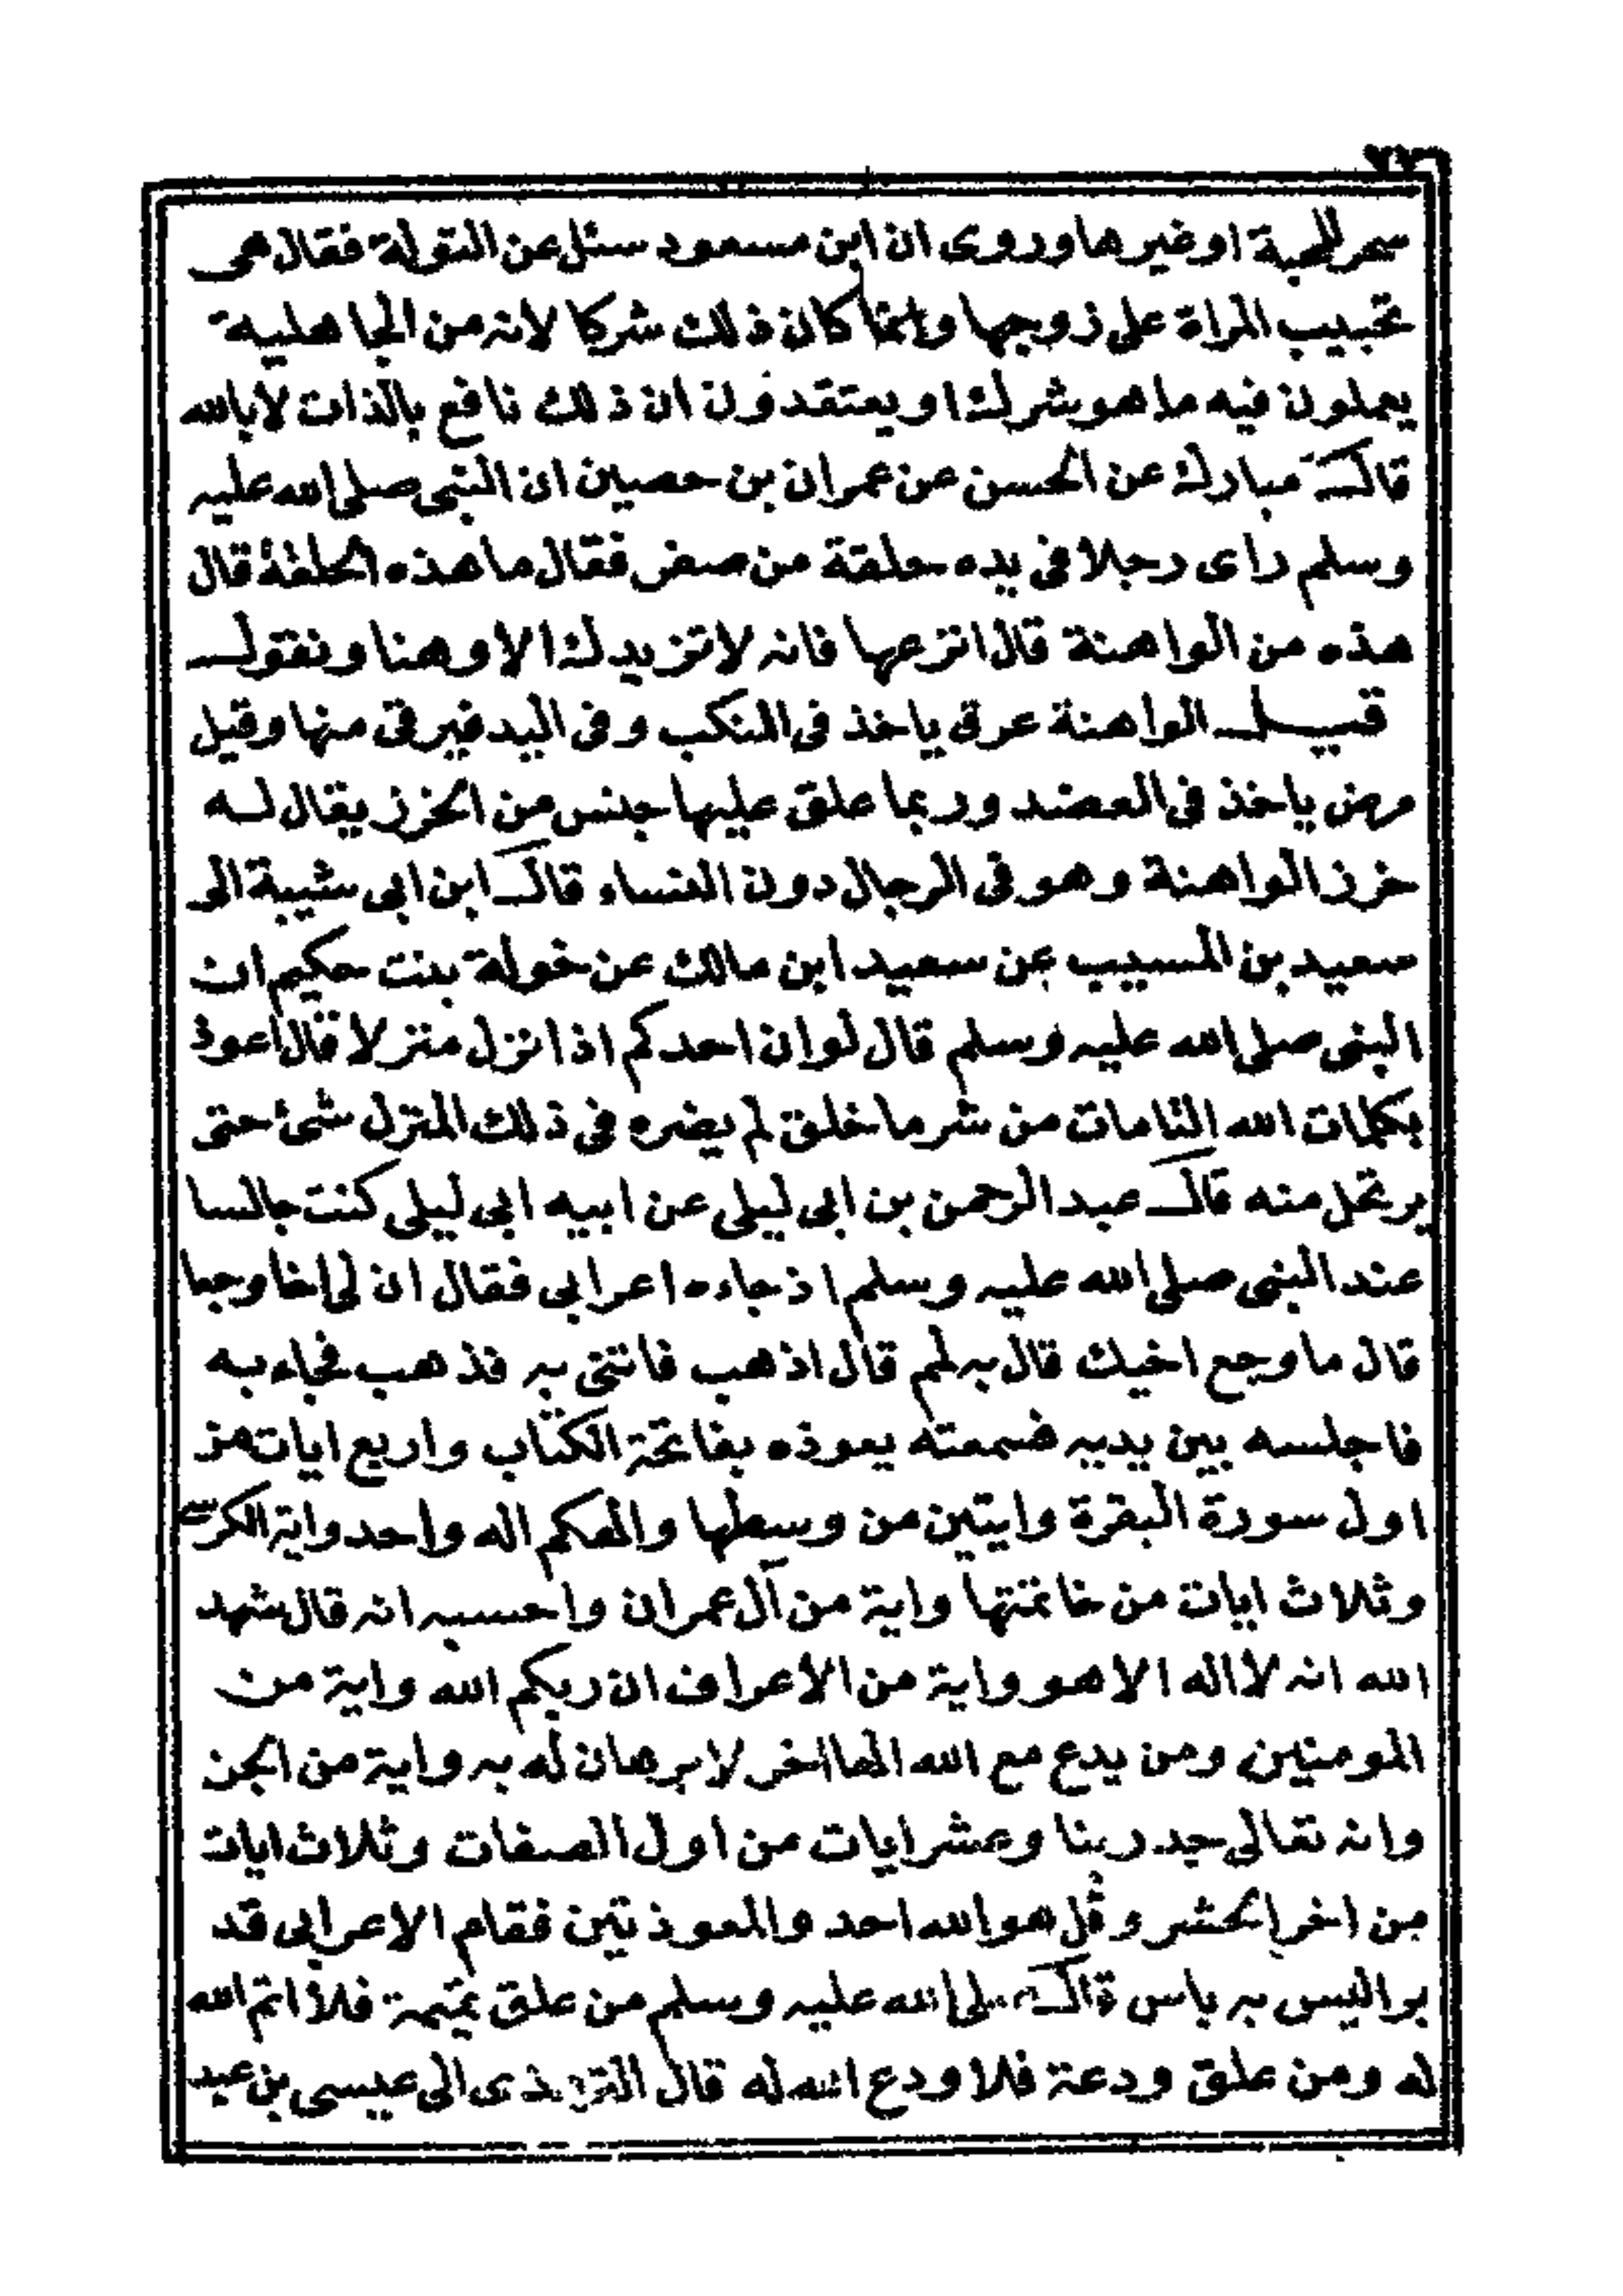 ٧٧
سحر للمحبة او غيرها وروى ان ابن مسعود سئل عن التولة فقال هى
تحبيب المراة على زوجها وانما كان ذلك شركا لانه من الجاهلية
يعملون فيه ما هو شرك ا ويعتقدون ان ذلك نافع بالذات لا بالله
قال مبارك عن الحسن عن عمران بن حصين ان النبى صلى الله عليه
وسلم راى رجلا فى يده حلقة من صفر فقال ما هذه الحلقة قال
هذه من الواهنة قال انزعها فانه لا تزيدك الا وهنا ونقول
قيل الواهنة عرق ياخذ فى المنكب وفى اليد فيرقى منها وقيل
مرض ياخذ فى العضد وربما علق عليها جنس من الخرز يقال له
خرز الواهنة وهو فى الرجال دون النساء قال ابن ابى شيبة الى
سعيد بن المسيب عن سعيد ابن مالك عن خولة بنت حكيم ان
النبى صلى الله عليه وسلم قال لو ان احدكم اذا نزل منزلا قال اعوذ
بكلمات الله التامات من شر ما خلق لم يضره فى ذلك المنزل شئ حتى
يرتحل منه قال عبد الرحمن بن ابى ليلى عن ابيه ابى ليلى كنت جالسا
عند النبى صلى الله عليه وسلم اذ جاءه اعرابى فقال ان لى اخا وجعا
قال ما وجع اخيك قال به لمم قال اذهب فاتنى به فذهب فجاء به
فاجلسه بين يديه فسمعته يعوذه بفاتحة الكتاب واربع ايات من
اول سورة البقرة وايتين من وسطها والهكم اله واحد واية الكرسى
وثلاث ايات من خاتمتها واية من آل عمران واحسبه انه قال شهد
الله انه لا اله الا هو واية من الاعراف ان ربكم الله واية من
المومنين ومن يدع مع الله الها اخر لا برهان له به واية من الجن
وانه تعالى جد ربنا وعشر ايات من اول الصفات وثلاث ايات
من اخر الحشر وقل هو الله احد والمعوذتين فقام الاعرابى قد
برا ليس به باس قال صلى الله عليه وسلم من علق تميمة فلا اتم الله
له ومن علق ودعة فلا ودع الله له قال الترمذى الى عيسى بن عبد